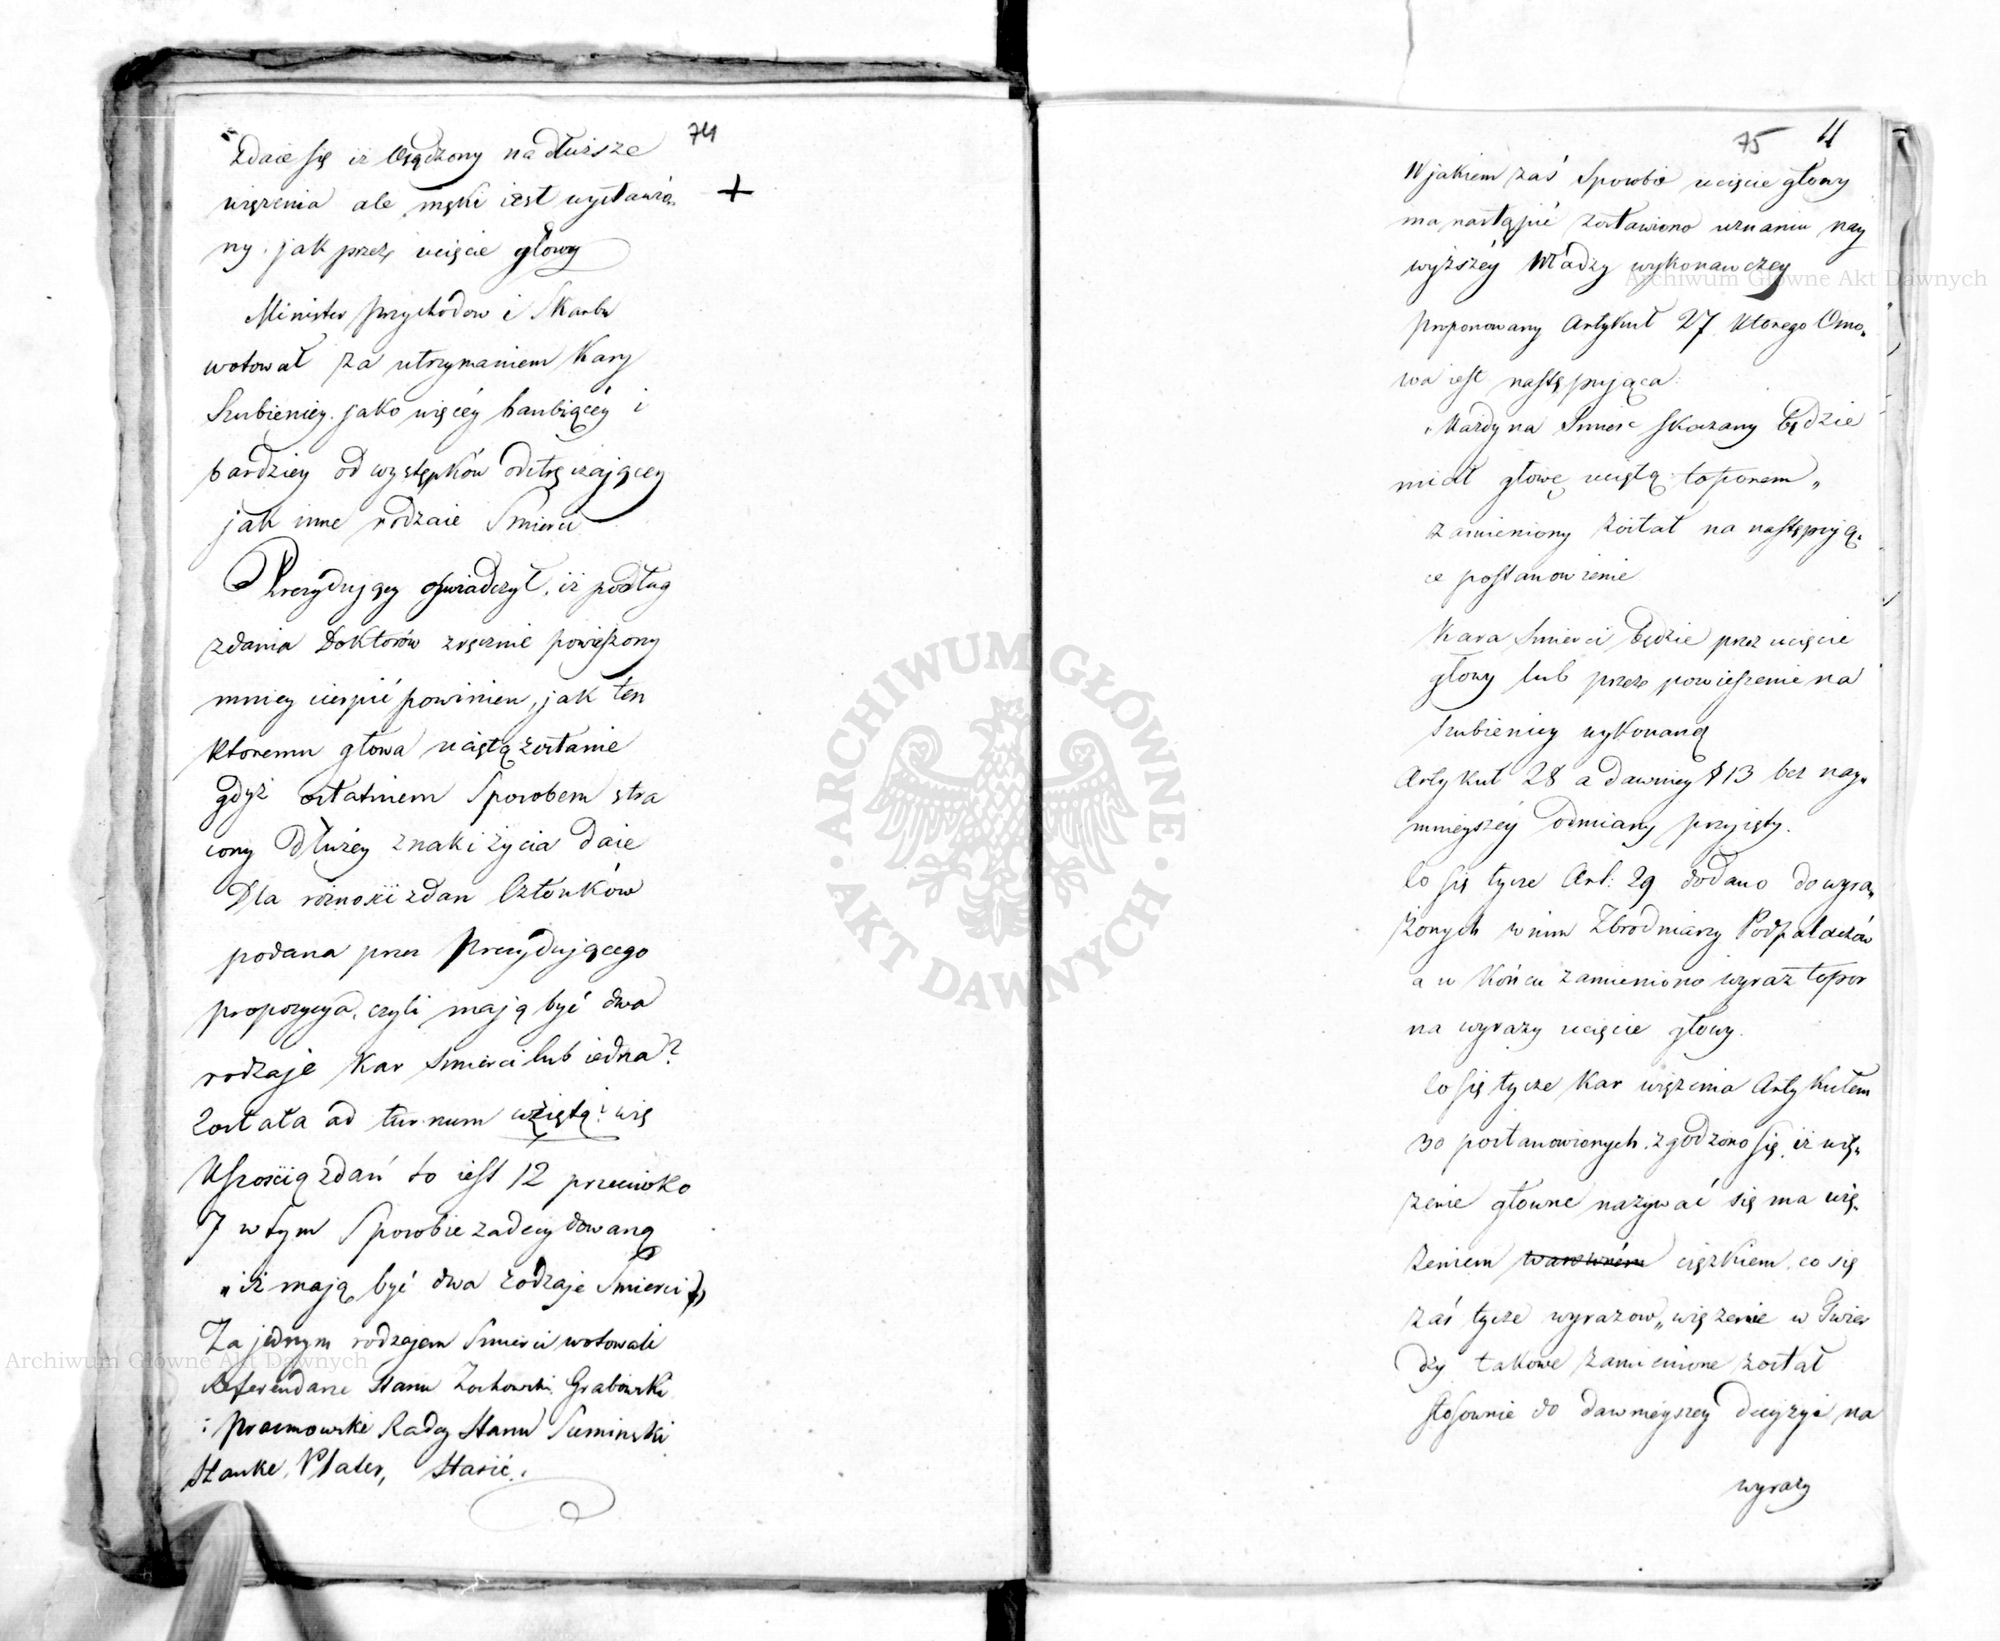 74
zdaie się iż osądzony na dłuższe
więzenia ale męki iest wystawio-
ny jak przez ucięcie głowy
Minister przychodow i Skarbu
wotował za utrzymaniem Kary
Szubienicy jako więcéy hanbiącéy i
bardziey od występków odstręczaiącey
jak inne rodzaie Smierci
Prezyduiący oswiadczył, iż podług
zdania Doktorów zręcznie powieszony
mniey cierpić powinien, jak ten
ktoremu głowa uciętą zostanie
gdyż ostatniem Sposobem stra
cony dłużéy znaki życia daie
Dla rożności zdan Członków
podana przez Prezyduiącego
propozycya, czyli maią być dwa
rodzaje Kar Smierci lub iedna?
Została ad turnum wziętą i wię
kszością zdań to iest 12 przeciwko
7 w tym Sposobie zadecydowaną
„iż maią być dwa rodzaje Smierci"
Za jednym rodzajem Smierci wotowali
Referendarze Stanu Zochowski, Grabowski
i Pracmowski Radcy Stanu Suminski
Hauke, Plater, Stasic.
75 4
W jakiem zaś Sposobie ucięcie głowy
ma nastąpić zostawiono uznaniu nay
wyższéy Władzy wykonawczey
proponowany Artykuł 27 ktorego Osno-
wa iest następująca
„Każdy na Smierć skazany będzie
miał głowę uciętą toporem„
zamieniony został na następuią-
ce postanowienie
Kara Smierci będzie przez ucięcie
głowy lub przez powieszenie na
szubienicy wykonaną
Artykuł 28 a dawniey § 13 bez nay-
mnieyszéy odmiany przyięty.
Co się tycze Art: 29 dodano do wyra-
żonych w nim Zbrodniarzy Podpalaczów
a w końcu zamieniono wyraz topor
na wyrazy ucięcie głowy.
Co się tycze Kar więzienia Artykułem
30 postanowionych, zgodzono się, iż wię-
zienie głowne nazywać się ma wię-
zieniem warownem ciężkiem, co się
zaś tycze wyrazow „więzienie w Twier
dzy takowe zamienione został
stosownie do dawnieyszey decyzyi na
wyrazy
Archiwum Główne Akt Dawnych
Archiwum Główne Akt Dawnych
ARCHIWUM GŁÓWNE
AKT DAWNYCH